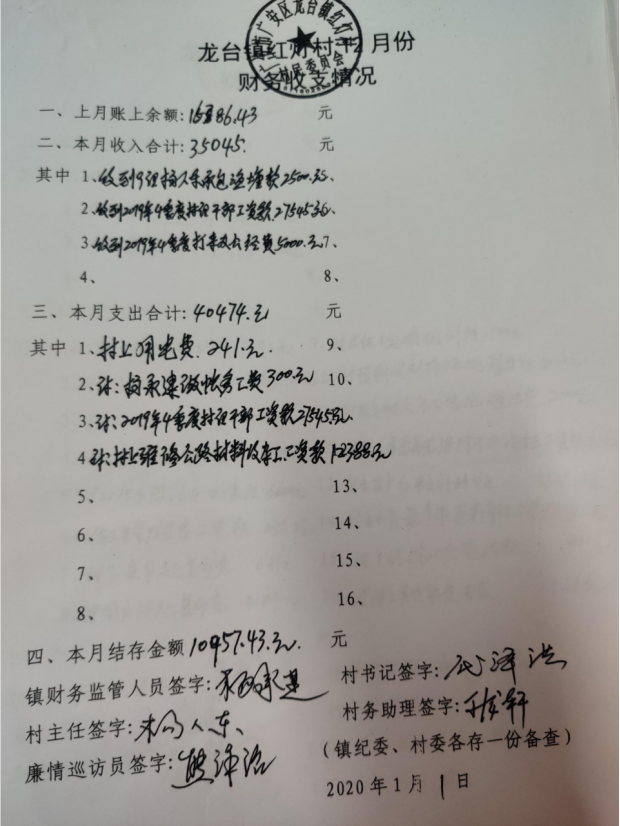 广安区龙台镇红灯村
村民委员会
龙台镇红灯村12月份
财务收支情况
一、上月账上余额:15386.43 元
二、本月收入合计:35045. 元
其中 1、收到 承包 款2500.元 5、
2、收到2019年4季度村 干部工资款.27545元 6、
3、收到2019年4季度 办公经费5000.元 7、
4、 8、
三、本月支出合计:40474.元 元
其中 1、村上用电费.241.元. 9、
2、 300.元 10、
3、 2019年4季度村 干部工资款27545元
4 村上维修公路材料 工资款12388元
5、 13、
6、 14、
7、 15、
8、 16、
四、本月结存金额10957.43.元. 元
镇财务监管人员签字: 村书记签字:
村主任签字: 村务助理签字:
廉情巡访员签字:熊泽 (镇纪委、村委各存一份备查)
2020年1月1日